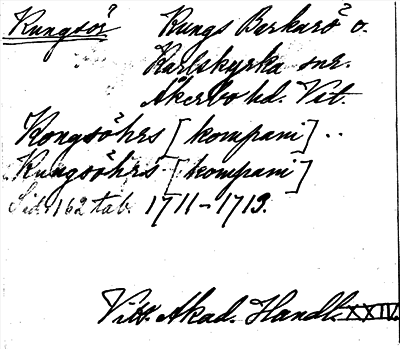 Kungsör Kungs Barkarö o.
Karlskyrka snr.
Åkerbo hd. Vst.
Kongsöhrs [kompani] ..
Kungsöhrs [kompani]
Sid. 162 tab. 1711-1713.
Vitt. Akad. Handl. XXIV.